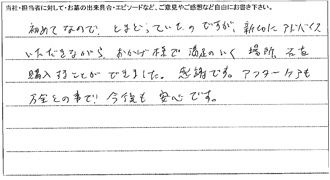 当社・担当者に対して・お墓の出来具合・エピソードなど、ご意見やご感想など自由にお書き下さい。
初めてなので、とまどっていたのですが、親切にアドバイス
いただきながら、おかげ様で満足のいく場所、石を
購入することができました。感謝です。アフターケアも
万全との事で！今後も安心です。